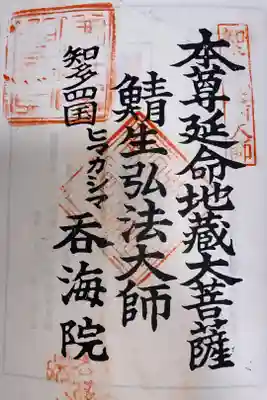 本尊延命地蔵大菩薩
鯖生弘法大師
知多四国ヒマカシマ 呑海院